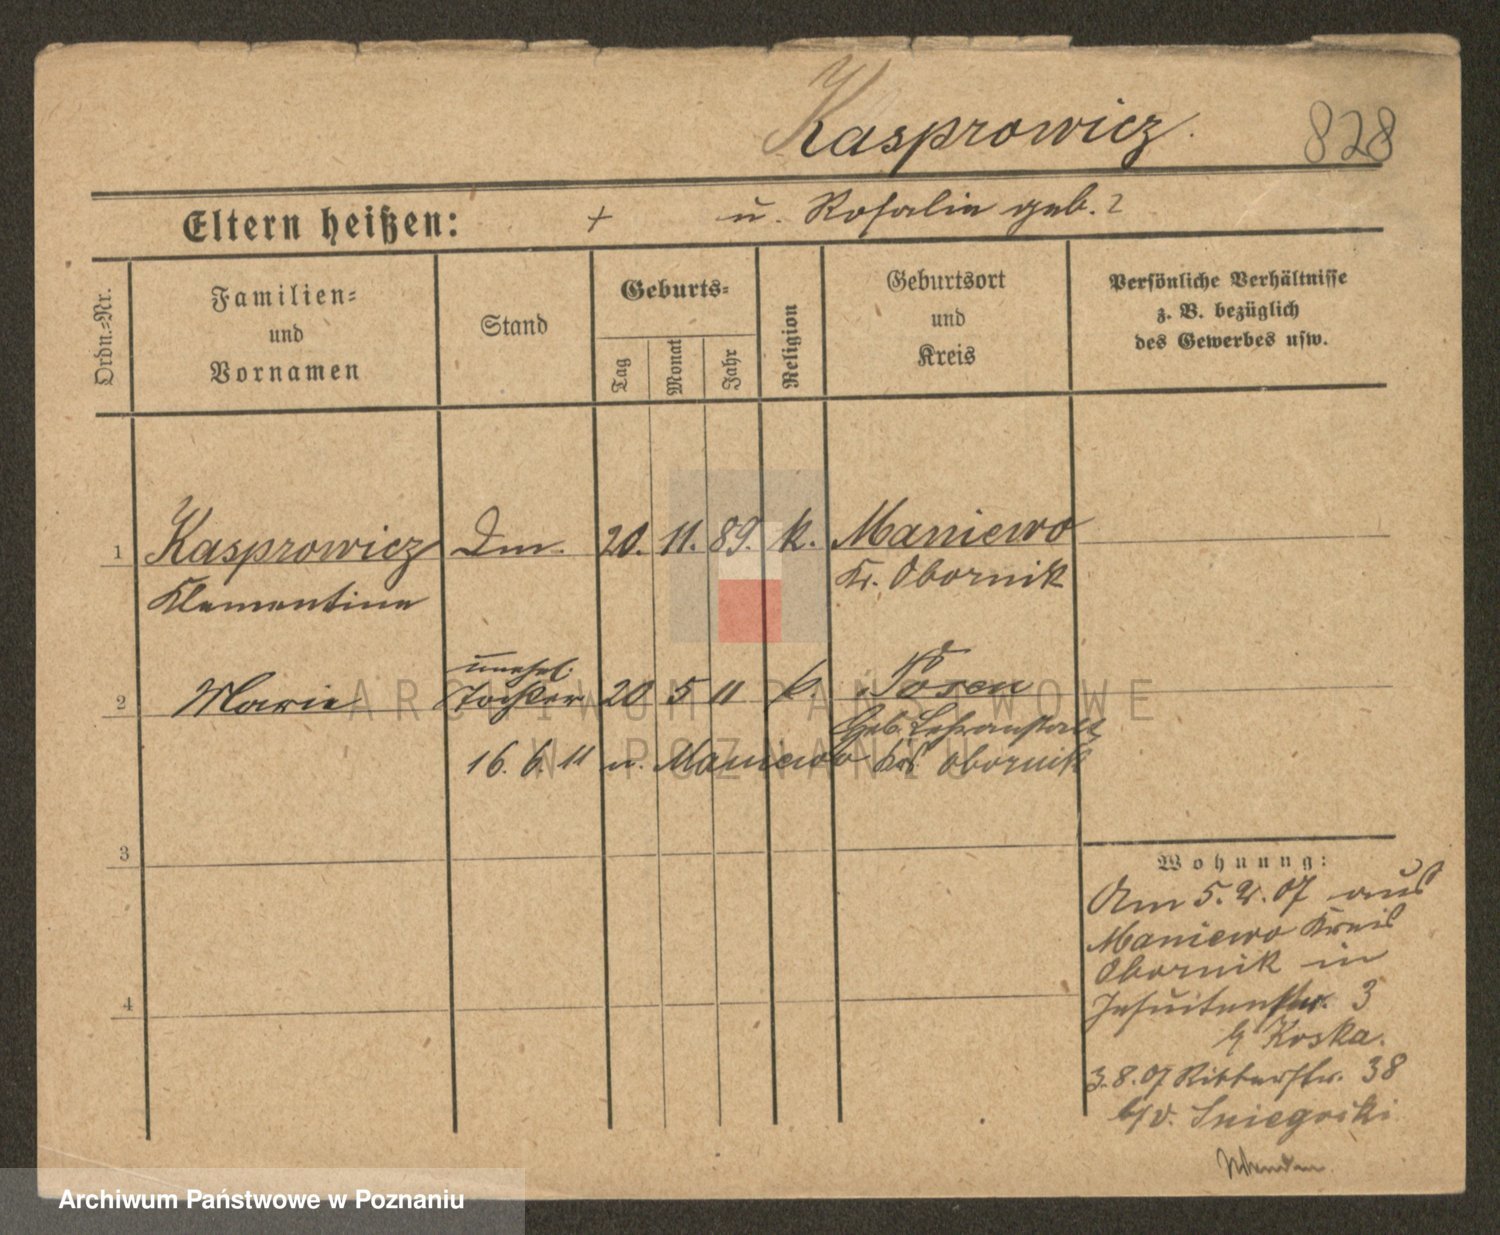 Kasprowicz.
828
Eltern heißen: + u. Rosalie geb. ?
Ordn.-Nr.
Familien-
und
Vornamen
Stand
Geburts-
Tag
Monat
Jahr
Religion
Geburtsort
und
Kreis
Persönliche Verhältnisse
z. B. bezüglich
des Gewerbes usw.
1 Kasprowicz Dm. 20. 11. 89. k. Maniewo
Klementine Kr. Obornik
unehel.
2 Marie Tochter 20 5 11 k. Posen
Geb. Lehranstalt
16. 6. 11 n. Maniewo Krs Obornik
3
Wohnung:
Am 5. 2. 07 aus
Maniewo Kreis
Obornik in
4
Jesuitenstr. 3
b/ Koska.
3. 8. 07 Ritterstr. 38
b/v.
ARCHIWUM PAŃSTWOWE
W POZNANIU
Archiwum Państwowe w Poznaniu